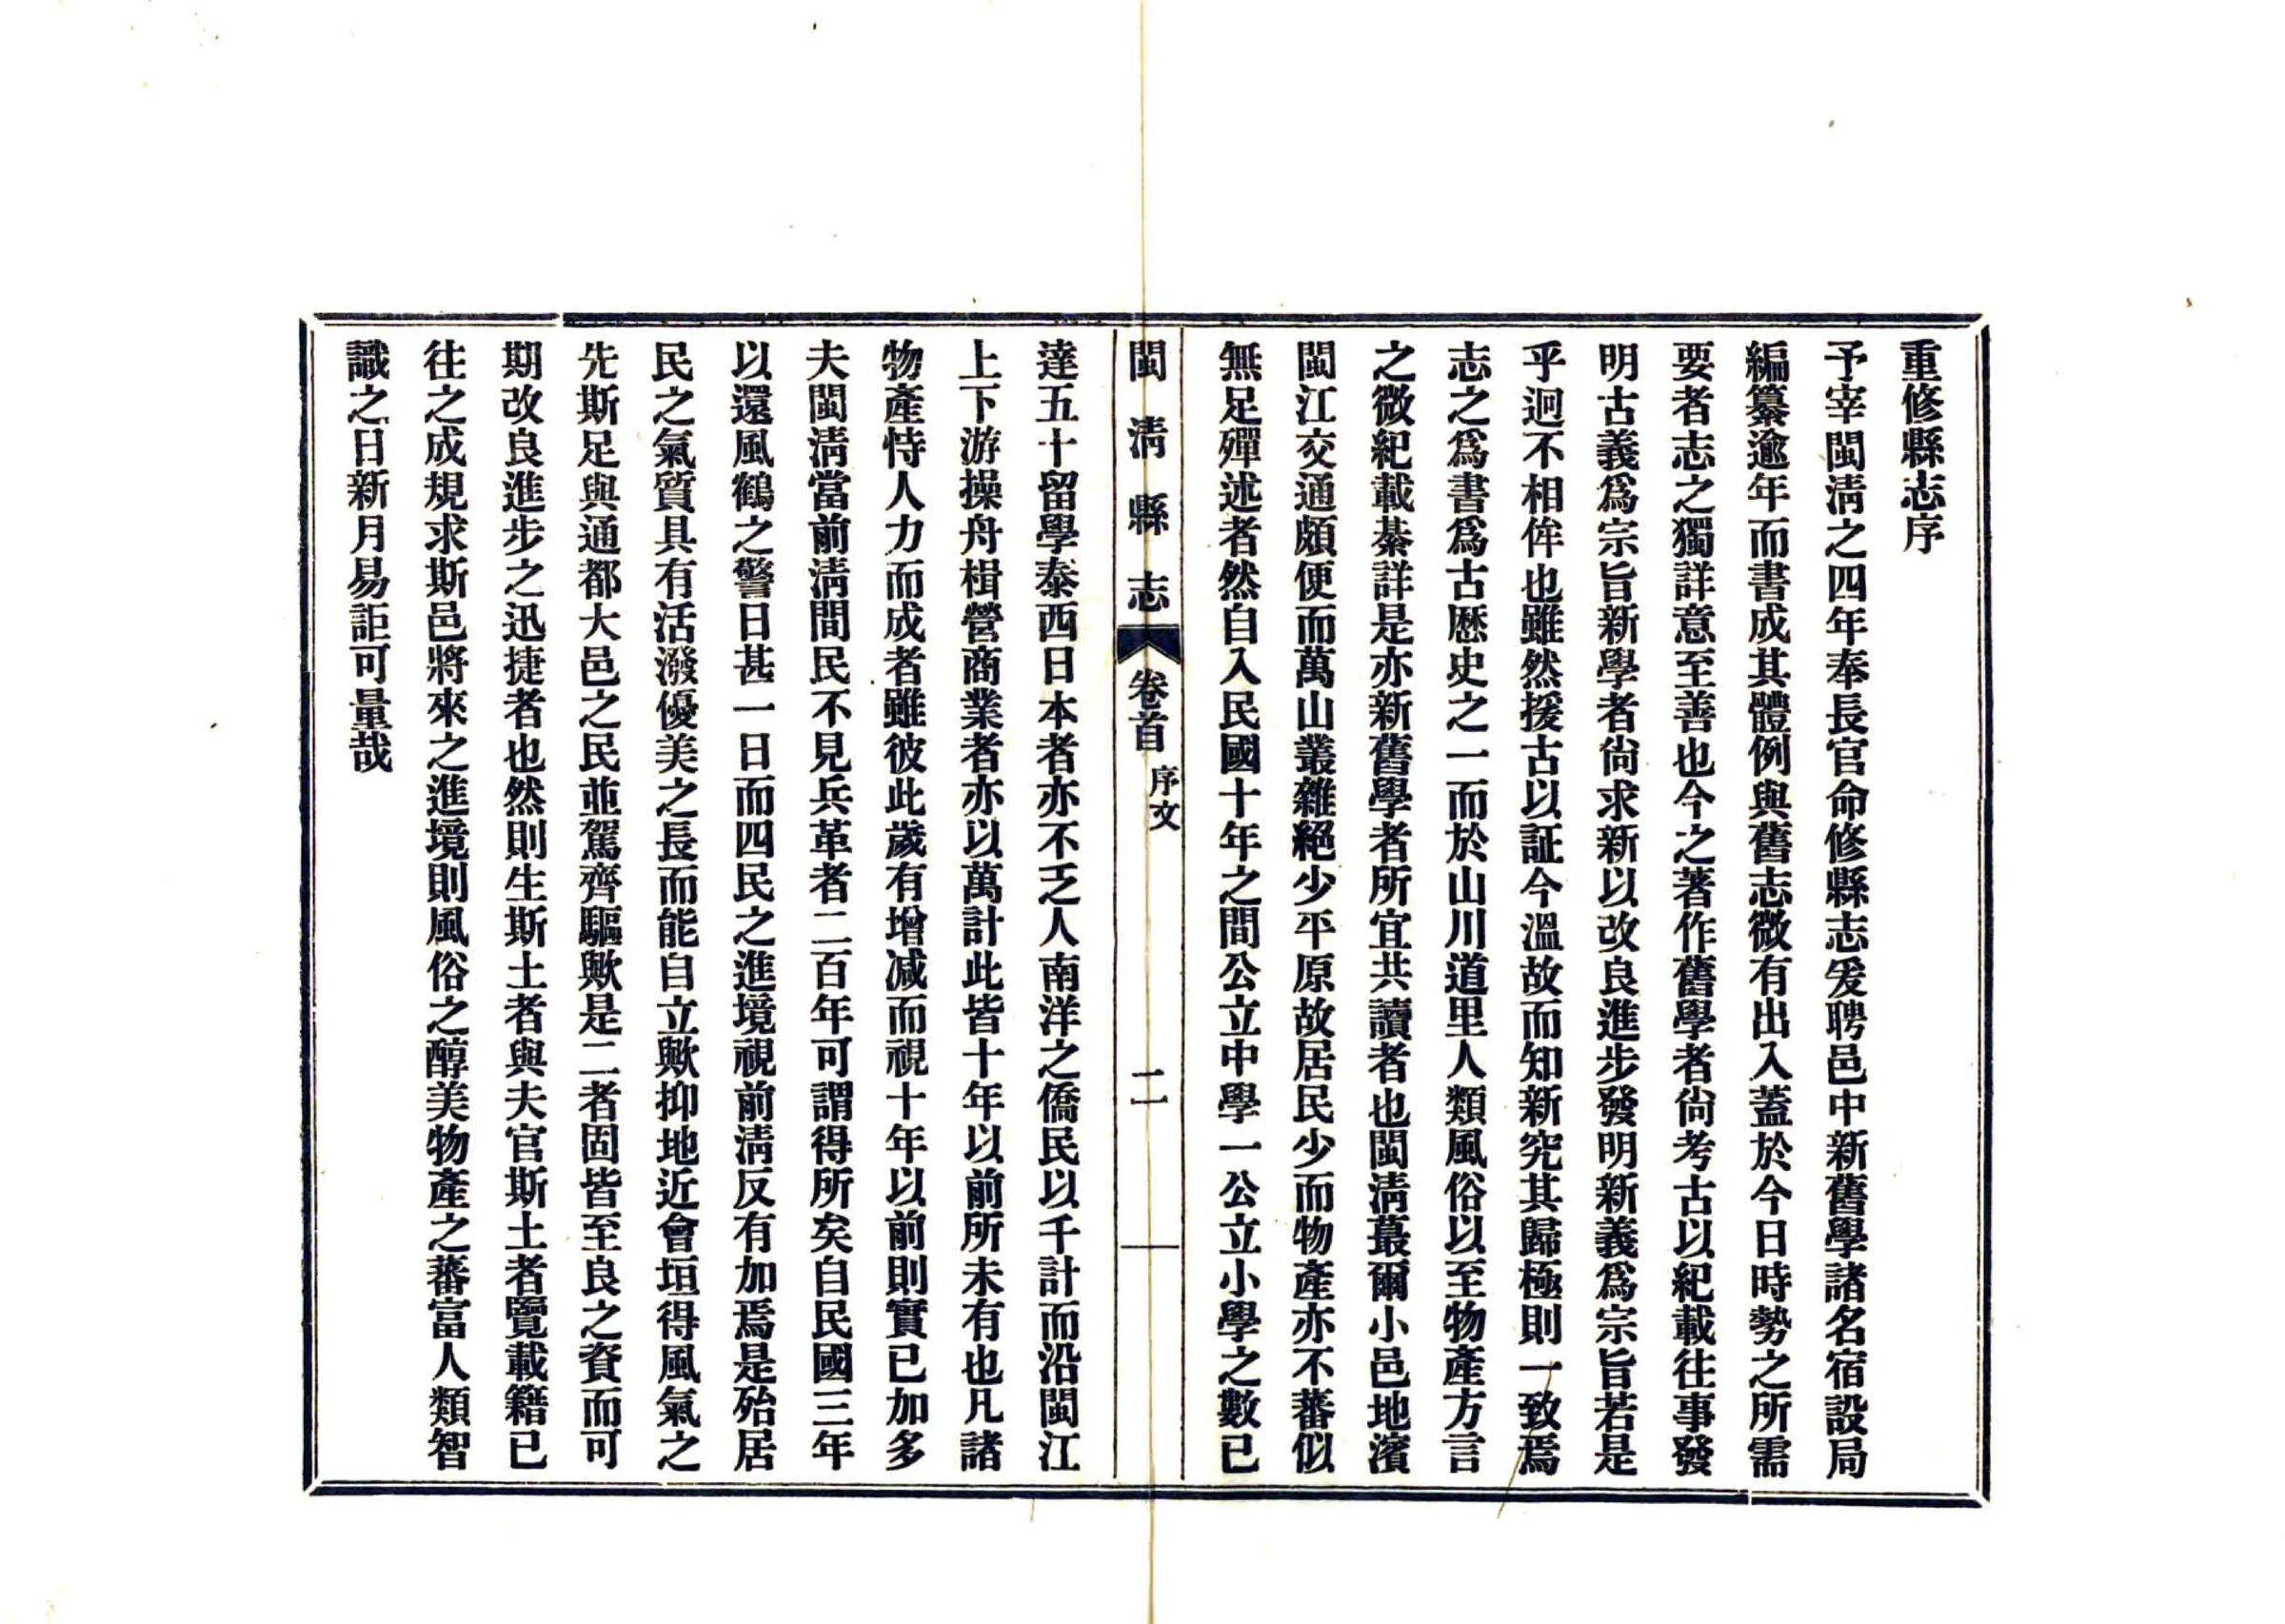 重修縣志序
予宰閩淸之四年奉長官命修縣志爰聘邑中新舊學諸名宿設局
編纂逾年而書成其體例與舊志微有出入蓋於今日時勢之所需
要者志之獨詳意至善也今之著作舊學者尙考古以紀載往事發
明古義爲宗旨新學者尙求新以改良進步發明新義爲宗旨若是
乎迥不相侔也雖然援古以証今溫故而知新究其歸極則一致焉
志之爲書爲古歷史之一而於山川道里人類風俗以至物產方言
之微紀載綦詳是亦新舊學者所宜共讀者也閩淸蕞爾小邑地濱
閩江交通頗便而萬山叢雜絕少平原故居民少而物產亦不蕃似
無足殫述者然自入民國十年之間公立中學一公立小學之數已
閩淸縣志
卷首
序文
二
達五十留學泰西日本者亦不乏人南洋之僑民以千計而沿閩江
上下游操舟楫營商業者亦以萬計此皆十年以前所未有也凡諸
物產恃人力而成者雖彼此歲有增减而視十年以前則實已加多
夫閩淸當前淸間民不見兵革者二百年可謂得所矣自民國三年
以還風鶴之警日甚一日而四民之進境視前淸反有加焉是殆居
民之氣質具有活潑優美之長而能自立歟抑地近會垣得風氣之
先斯足與通都大邑之民並駕齊驅歟是二者固皆至良之資而可
期改良進步之迅捷者也然則生斯土者與夫官斯土者覽載籍已
往之成規求斯邑將來之進境則風俗之醇美物產之蕃富人類智
識之日新月易詎可量哉